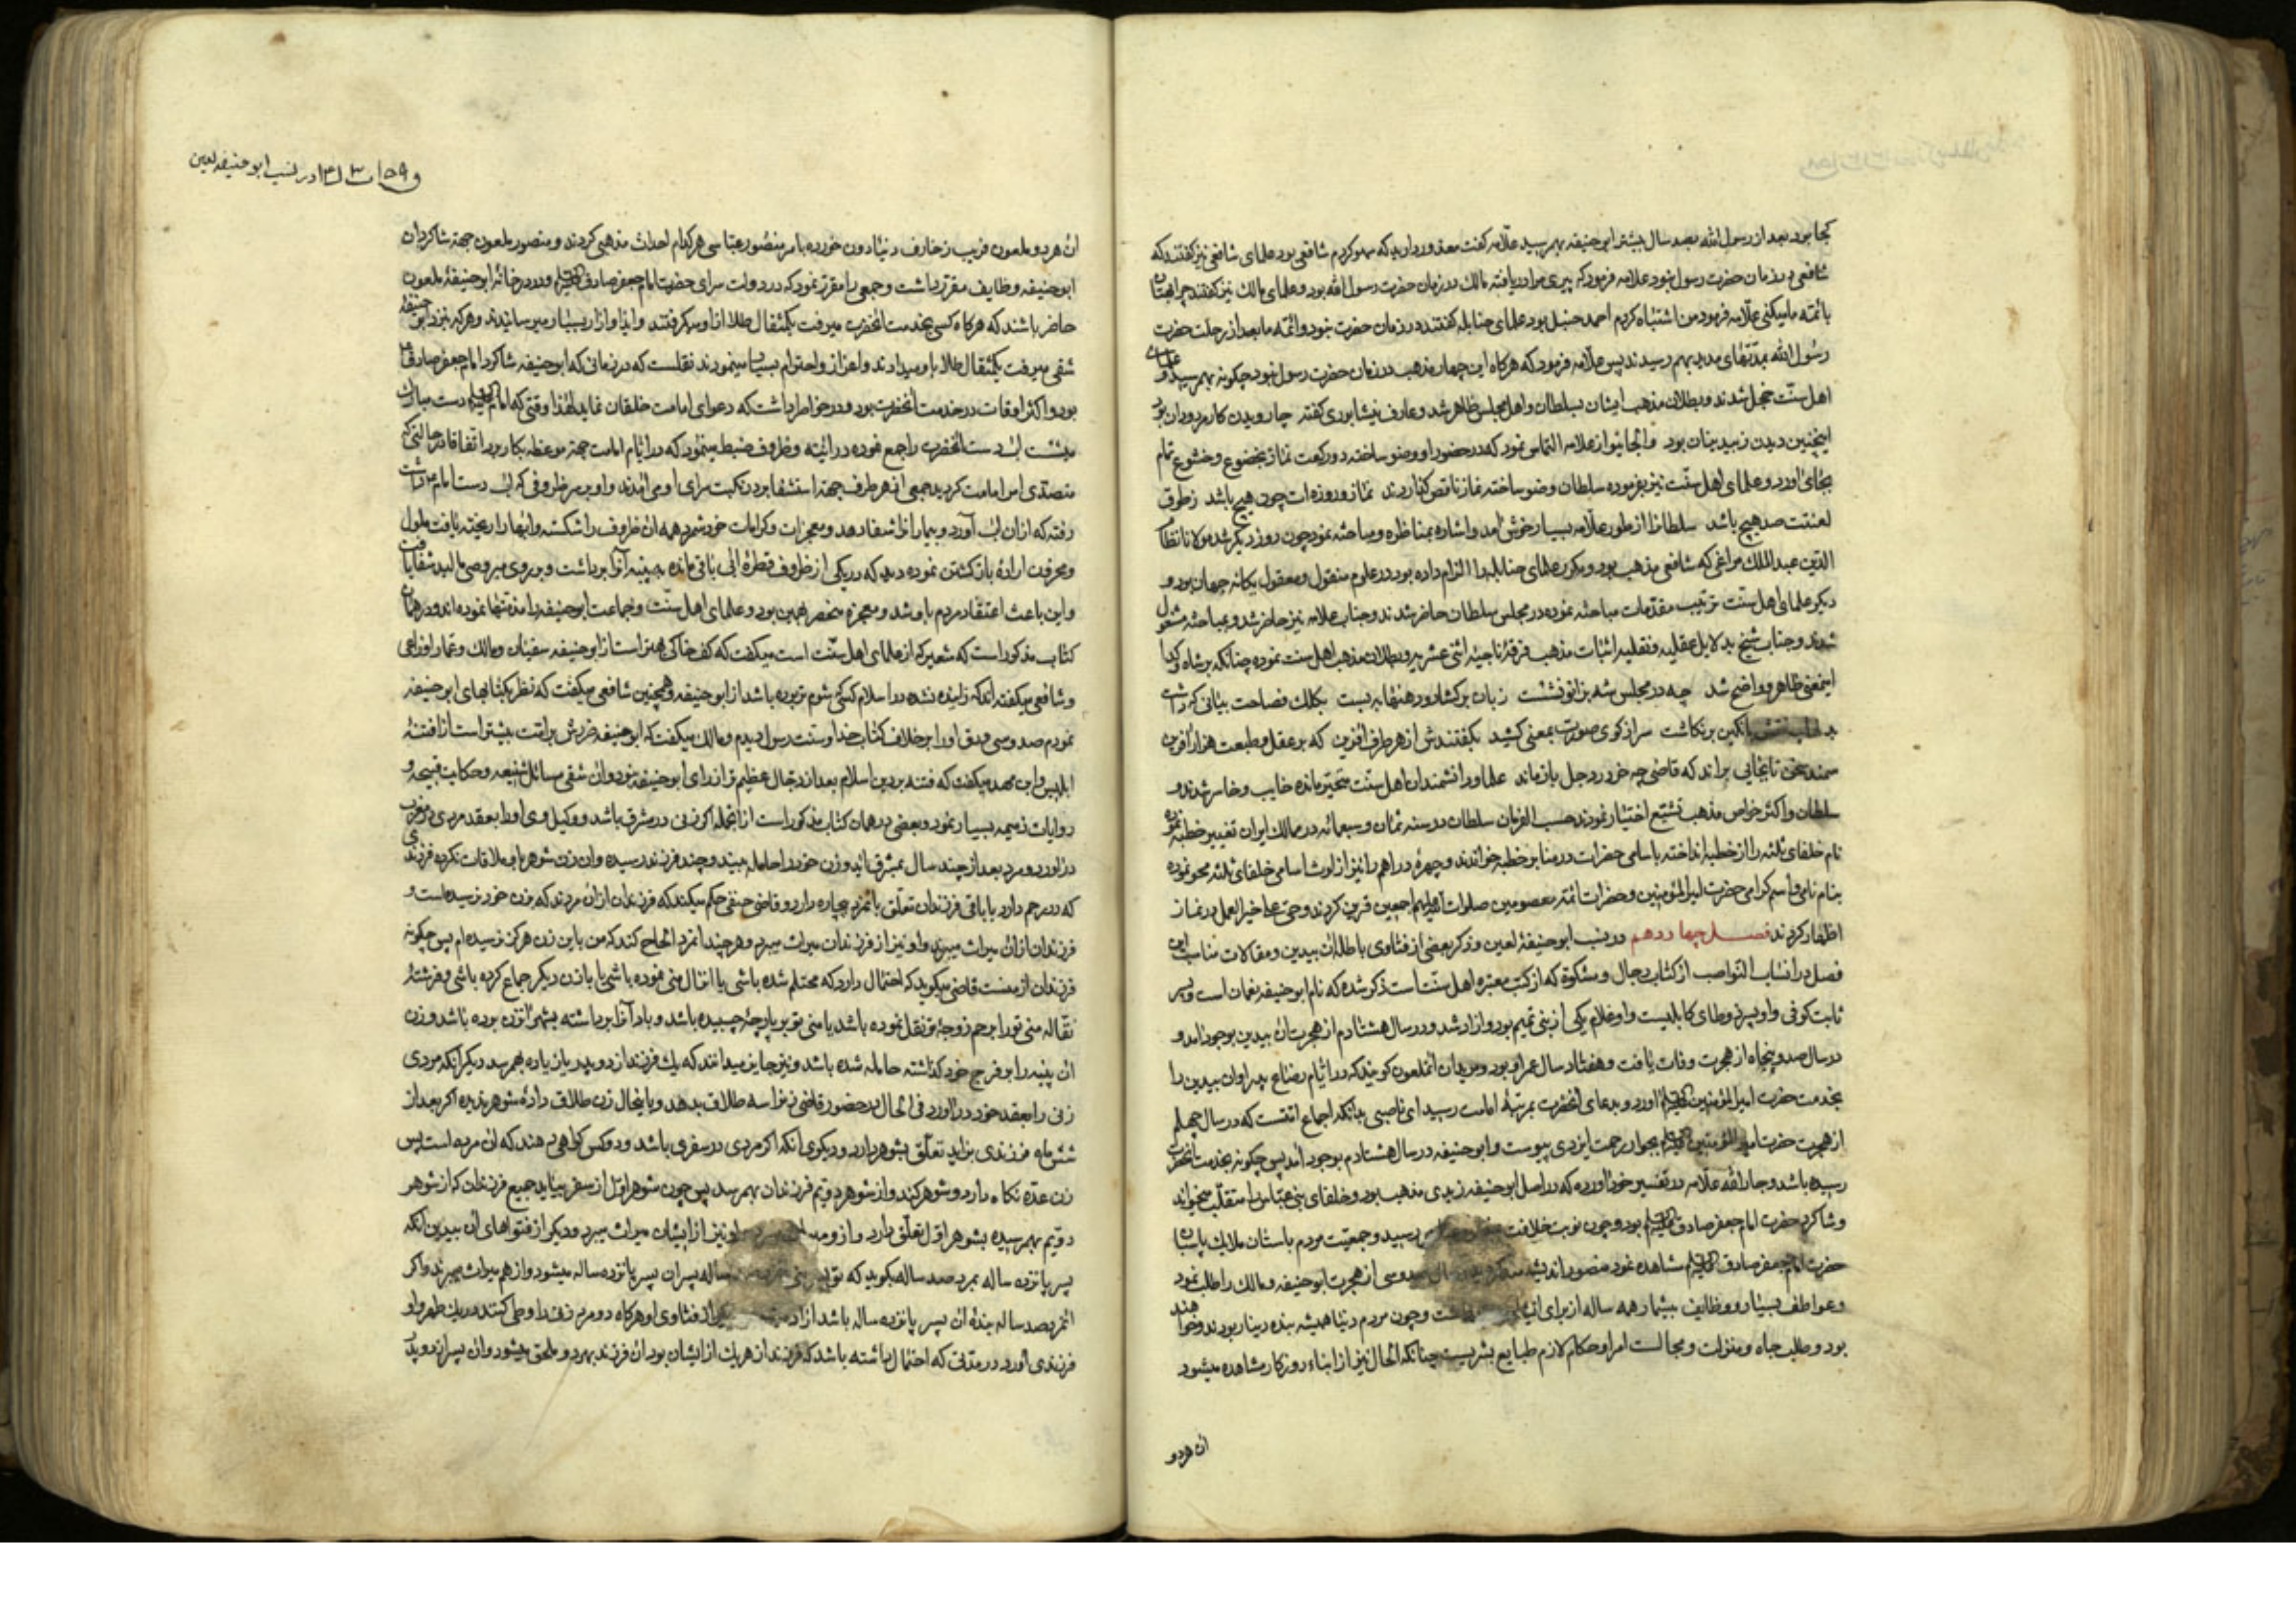 کجا بود بعد از رسول الله بصد سال بیشتر ابو حنیفه بهم رسید علامه گفت معذور دارید که سهو کردم شافعی بود علمای شافعی نیز گفتند که
شافعی در زمان حضرت رسول نبود علامه فرمود که پیری مرا دریافته مالک در زمان حضرت رسول الله بود و علمای مالک نیز گفتند چرا بهتان
بائمه ما میکنی علامه فرمود من اشتباه کردم احمد حنبل بود علمای حنابله گفتند در زمان حضرت نبود و ائمه ما بعد از رحلت حضرت
رسول الله بمدتهای مدید بهم رسیدند پس علامه فرمود که هرکاه این چهار مذهب در زمان حضرت رسول نبود چکونه بهم رسید و علمای
اهل سنت خجل شدند و بطلان مذهب ایشان بسلطان و اهل مجلس ظاهر شد و عارف نیشابوری گفته چار و دیدن کار مردودان بود
اینچنین دیدن ز بیدینان بود و الجایتو از علامه التماس نمود که در حضور او وضو ساخته دو رکعت نماز بخضوع و خشوع تمام
بجای اورد و علمای اهل سنت نیز بفرموده سلطان وضو ساخته نماز ناقص کناردند نماز و روزه ات چون هیچ باشد ز طوق
لعنتت صد هیچ باشد سلطانرا از طور علامه بسیار خوش آمد و اشاره بمناظره و مباحثه نمود چون روز دیگر شد مولانا نظام
الدین عبد الملک مراغی که شافعی مذهب بود و مکرر علمای حنابله را الزام داده بود در علوم منقول و معقول یکانه جهان بود و
دیکر علمای اهل سنت ترتیب مقدمات مباحثه نموده در مجلس سلطان حاضر شدند و جناب علامه نیز حاضر شد و بمباحثه مشغول
شدند و جناب شیخ بدلایل عقلیه و نقلیه اثبات مذهب فرقه ناجیه اثنی عشریه و بطلان مذهب اهل سنت نموده چنانکه بر شاه و کدا
اینمعنی ظاهر و واضح شد چه در مجلس شه بزانو نشست زبان برکشاد و دهنها ببست بکلک فصاحت بیانی که داشت
انکبین برنکاشت سر از کوی صورت بمعنی کشید بکفتندش از هر طرف آفرین که بر عقل و طبعت هزار آفرین
سمند سخن تا بجایی براند که قاضی چه خر در وحل باز ماند علما و دانشمندان اهل سنت متحیر مانده خایب و خاسر شدند و
سلطان و اکثر خواص مذهب تشیع اختیار نمودند حسب الفرمان سلطان در سنه ثمان و سبعمائه در ممالک ایران تغییر خطبه نموده
نام خلفای ثلثه را از خطبه انداخته باسامی حضرات در منابر خطبه خواندند و چهره دراهم را نیز از لوث اسامی خلفای ثلثه محو نموده
بنام نامی و اسم کرامی حضرت امیر المؤمنین و حضرات ائمه معصومین صلوات الله علیهم اجمعین قرین کردند و حی علی خیر العمل در نماز
اظهار کردند فصل چهاردهم در نسب ابو حنیفه لعین و ذکر بعضی از فتاوی باطله ان بیدین و مقالات مناسب این
فصل در انساب النواصب از کتاب رجال و مشکوة که از کتب معتبره اهل سنت است ذکر شده که نام ابو حنیفه نعمان است و پسر
ثابت کوفی و او پسر زوطای کابلیست و او غلام یکی از بنی تمیم بود و ازاد شد و در سال هشتادم از هجرت ان بیدین بوجود امد و
در سال صد و پنجاه از هجرت وفات یافت و هفتاد سال عمر او بود و مریدان انملعون کویند که در ایام رضاع پدر او ان بیدین را
بخدمت حضرت امیر المؤمنین علیه السلام اورد و بدعای انحضرت بمرتبه امامت رسید ای ناصبی بدانکه اجماع امتست که در سال چهلم
از هجرت حضرت امیر المؤمنین علیه السلام بجوار رحمت ایزدی پیوست و ابو حنیفه در سال هشتادم بوجود آمد پس چکونه بخدمت انحضرت
رسیده باشد و جار الله علامه در تفسیر خود آورده که در اصل ابو حنیفه زیدی مذهب بود و خلفای بنی عباس را متقلب میخواند
و شاکرد حضرت امام جعفر صادق علیه السلام بود و چون نوبت خلافت رسید و جمعیت مردم باستان ملایک پاسبان
حضرت امام جعفر صادق علیه السلام مشاهده نمود منصور اندیشه سی از هجرت ابو حنیفه و مالک را طلب نمود
و عواطف بسیار و وظایف بیشمار همه ساله از برای و چون مردم دنیا همیشه بنده دینار بودند و خواهند
بود و طلب جاه و منزلت و مجالست امرا و حکام لازم طبایع بشریست چنانکه الحال نیز از ابناء روزکار مشاهده میشود
ان هردو
در نسب ابو حنیفه لعین
ان هردو ملعون فریب زخارف دنیا دون خورده بامر منصور عباسی هرکدام احداث مذهبی کردند و منصور ملعون جهة شاکردان
ابو حنیفه وظایف مقرر داشت و جمعی را مقرر نمود که در دولت سرای حضرت امام جعفر صادق علیه السلام و در در خانه ابو حنیفه ملعون
حاضر باشند که هرکاه کسی بخدمت انحضرت میرفت یکمثقال طلا از او میکرفتند و ایذا و ازار بسیار میرسانیدند و هرکه نزد ابو حنیفه
شقی میرفت یکمثقال طلا باو میدادند و اعزاز و احترام بسیار مینمودند نقلست که در زمانی که ابو حنیفه شاکرد امام جعفر صادق
بود و اکثر اوقات در خدمت انحضرت بود و در خواطر داشت که دعوای امامت خلقان نماید لهذا وقتی که امام علیه السلام دست مبارک
میشست اب دست انحضرت را جمع نموده در انیه و ظروف ضبط مینمود که در ایام امامت جهة موعظه بکار برد اتفاقا در حالتی که
متصدی امر امامت کردید جمعی از هر طرف جهة استشفا بردن نکبت سرای او می آمدند و او بر سر ظروفی که اب دست امام داشت
رفته که از ان اب آورد و بیمار انرا شفا دهد و معجزات و کرامات خود شمرد همه ان ظروف را شکسته و ابها را ریخته یافت ملول
و محزون اراده بازکشتن نموده دید که در یکی از ظروف قطره ابی باقی مانده پنبه آنرا برداشت و بر روی مبروصی مالید شفا یافت
و این باعث اعتقاد مردم باو شد و معجزه منحصر بهمین بود و علمای اهل سنت و جماعت ابو حنیفه را مذمتها نموده اند و در همان
کتاب مذکور است که شعیر که از علمای اهل سنت است میکفت که کف خاکی بهتر است از ابو حنیفه سفیان و مالک و عمار اوزاعی
و شافعی میکفته اند که زاینده نشده در اسلام کسی که شوم تر بوده باشد از ابو حنیفه و همچنین شافعی میکفت که نظر بکتابهای ابو حنیفه
نمودم صد و سی ورق او را بر خلاف کتاب خدا و سنت رسول دیدم و مالک میکفت که ابو حنیفه ضررش بر امت بیشتر است از فتنه
ابلیس و ابن مهد میکفت که فتنه بر دین اسلام بعد از دجال عظیم تر از رای ابو حنیفه نبود و ان شقی مسائل شنیعه و حکایت قبیحه و
روایات ذمیمه بسیار نمود و بعضی در همان کتاب مذکور است از انجمله اکر زنی در مشرق باشد و وکیل وی او را بعقد مردی در مغرب
در آورد و مرد بعد از چند سال بمشرق اید و زن خود را حامله بیند و چند فرزند رسیده و ان زن شوهر را ملاقات نکرده فرزندی
که در رحم دارد با باقی فرزندان تعلق بانمرد بیچاره دارد و قاضی حنفی حکم میکند که فرزندان از ان مردند که بزن خود نرسیده است و
فرزندان از ان میراث میبرند و او نیز از فرزندان میراث میبرد و هرچند انمرد الحاح کند که من باین زن هرکز نرسیده ام پس چکونه
فرزندان از منست قاضی میکوید که احتمال دارد که محتلم شده باشی یا انزال منی نموده باشی یا با زن دیکر جماع کرده باشی و فرشته
نقاله منی تورا برحم زوجه تو نقل نموده باشد یا منی تو بر پارچه چسبیده باشد و باد آنرا برداشته بشهر انزن برده باشد و زن
ان پنبه را بر فرج خود کذاشته حامله شده باشد و نیز جایز میدانند که یک فرزند از دو پدر یا زیاده بهم رسد دیکر آنکه مردی
زنی را بعقد خود در اورد فی الحال در حضور قاضی زنرا سه طلاق بدهد و با اینحال زن طلاق داده شوهر ندیده اکر بعد از
شش ماه فرزندی بزاید تعلق بشوهر دارد و دیکری انکه اکر مردی در سفری باشد و دو کس کواهی دهند که ان مرد مرده است پس
زن عده نکاه دارد و شوهر کند و از شوهر دویم فرزندان بهم رسد پس چون شوهر اول از سفر بیاید جمیع فرزندان که از شوهر
دویم بهم رسیده بشوهر اول تعلق دارد و از و او نیز از ایشان میراث میبرد و دیکر از فتواهای ان بیدین انکه
پسر پانزده ساله بمرد صد ساله بکوید که تو پسر منی ساله پسر ان پسر پانزده ساله میشود و از هم میراث میبرند و اکر
انمرد صد ساله بنده ان پسر پانزده ساله باشد ازاد از فتاوی او هرکاه دو مرد زنی را وطی کنند در یک طهر و او
فرزندی آورد در مدتی که احتمال داشته باشد که فرزند از هریک از ایشان بود ان فرزند بهردو ملحق میشود و ان پسر از دو پدر